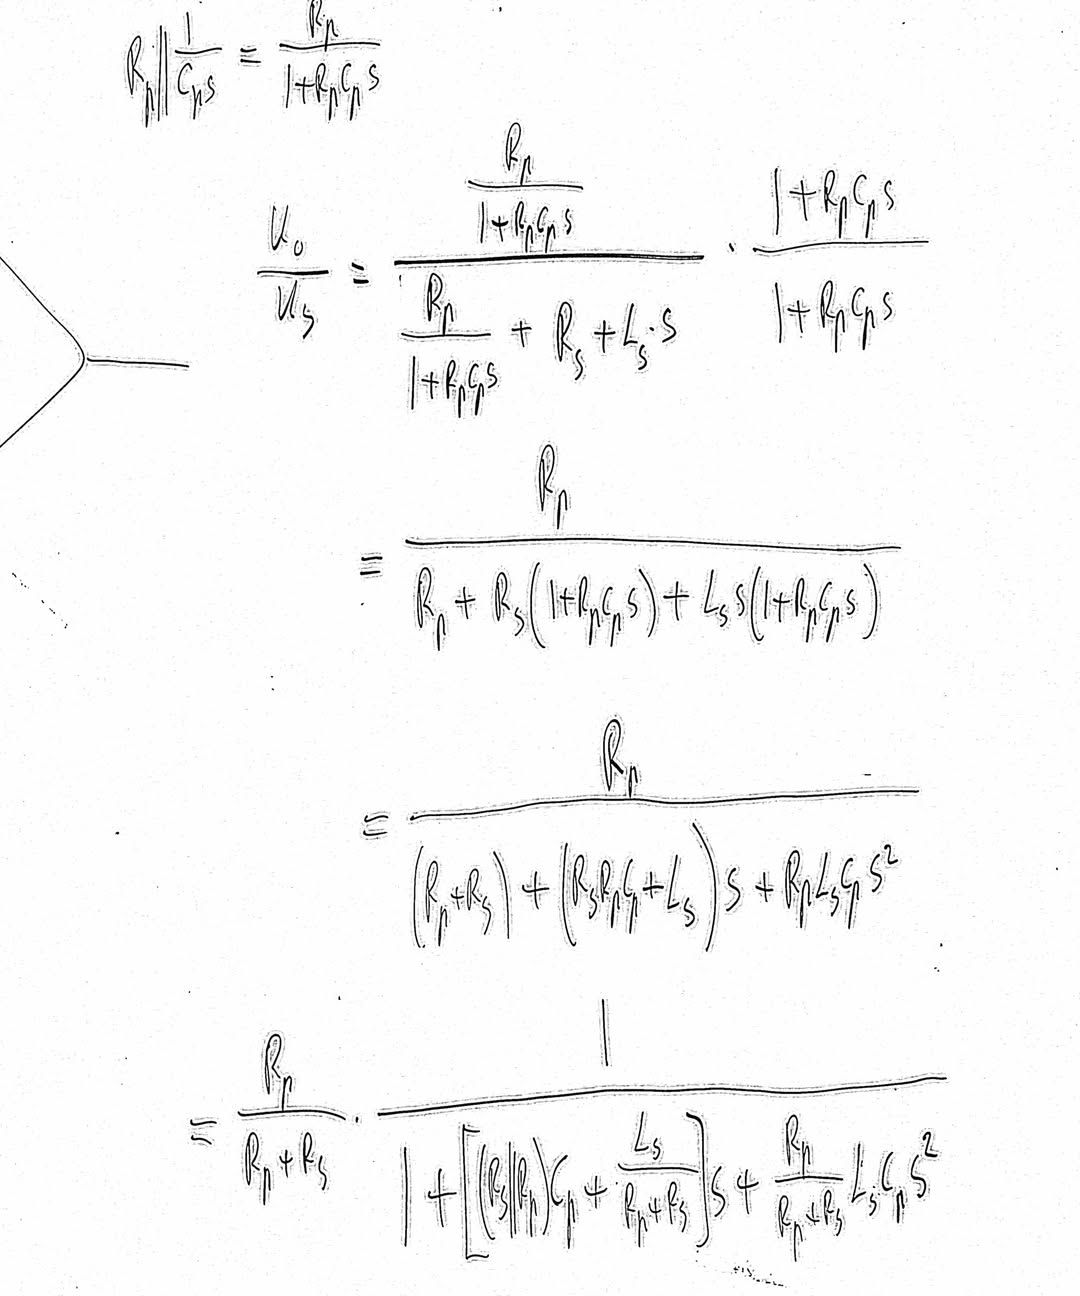 R_p || 1/(C_p s) = R_p/(1+R_p C_p s)
U_o/U_s = [R_p/(1+R_p C_p s)] / [R_p/(1+R_p C_p s) + R_s + L_s·s] · (1+R_p C_p s)/(1+R_p C_p s)
= R_p / [R_p + R_s(1+R_p C_p s) + L_s s(1+R_p C_p s)]
= R_p / [(R_p+R_s) + (R_s R_p C_p + L_s) s + R_p L_s C_p s²]
= R_p/(R_p+R_s) · 1 / [1 + [(R_s||R_p)C_p + L_s/(R_p+R_s)] s + R_p/(R_p+R_s) L_s C_p s²]